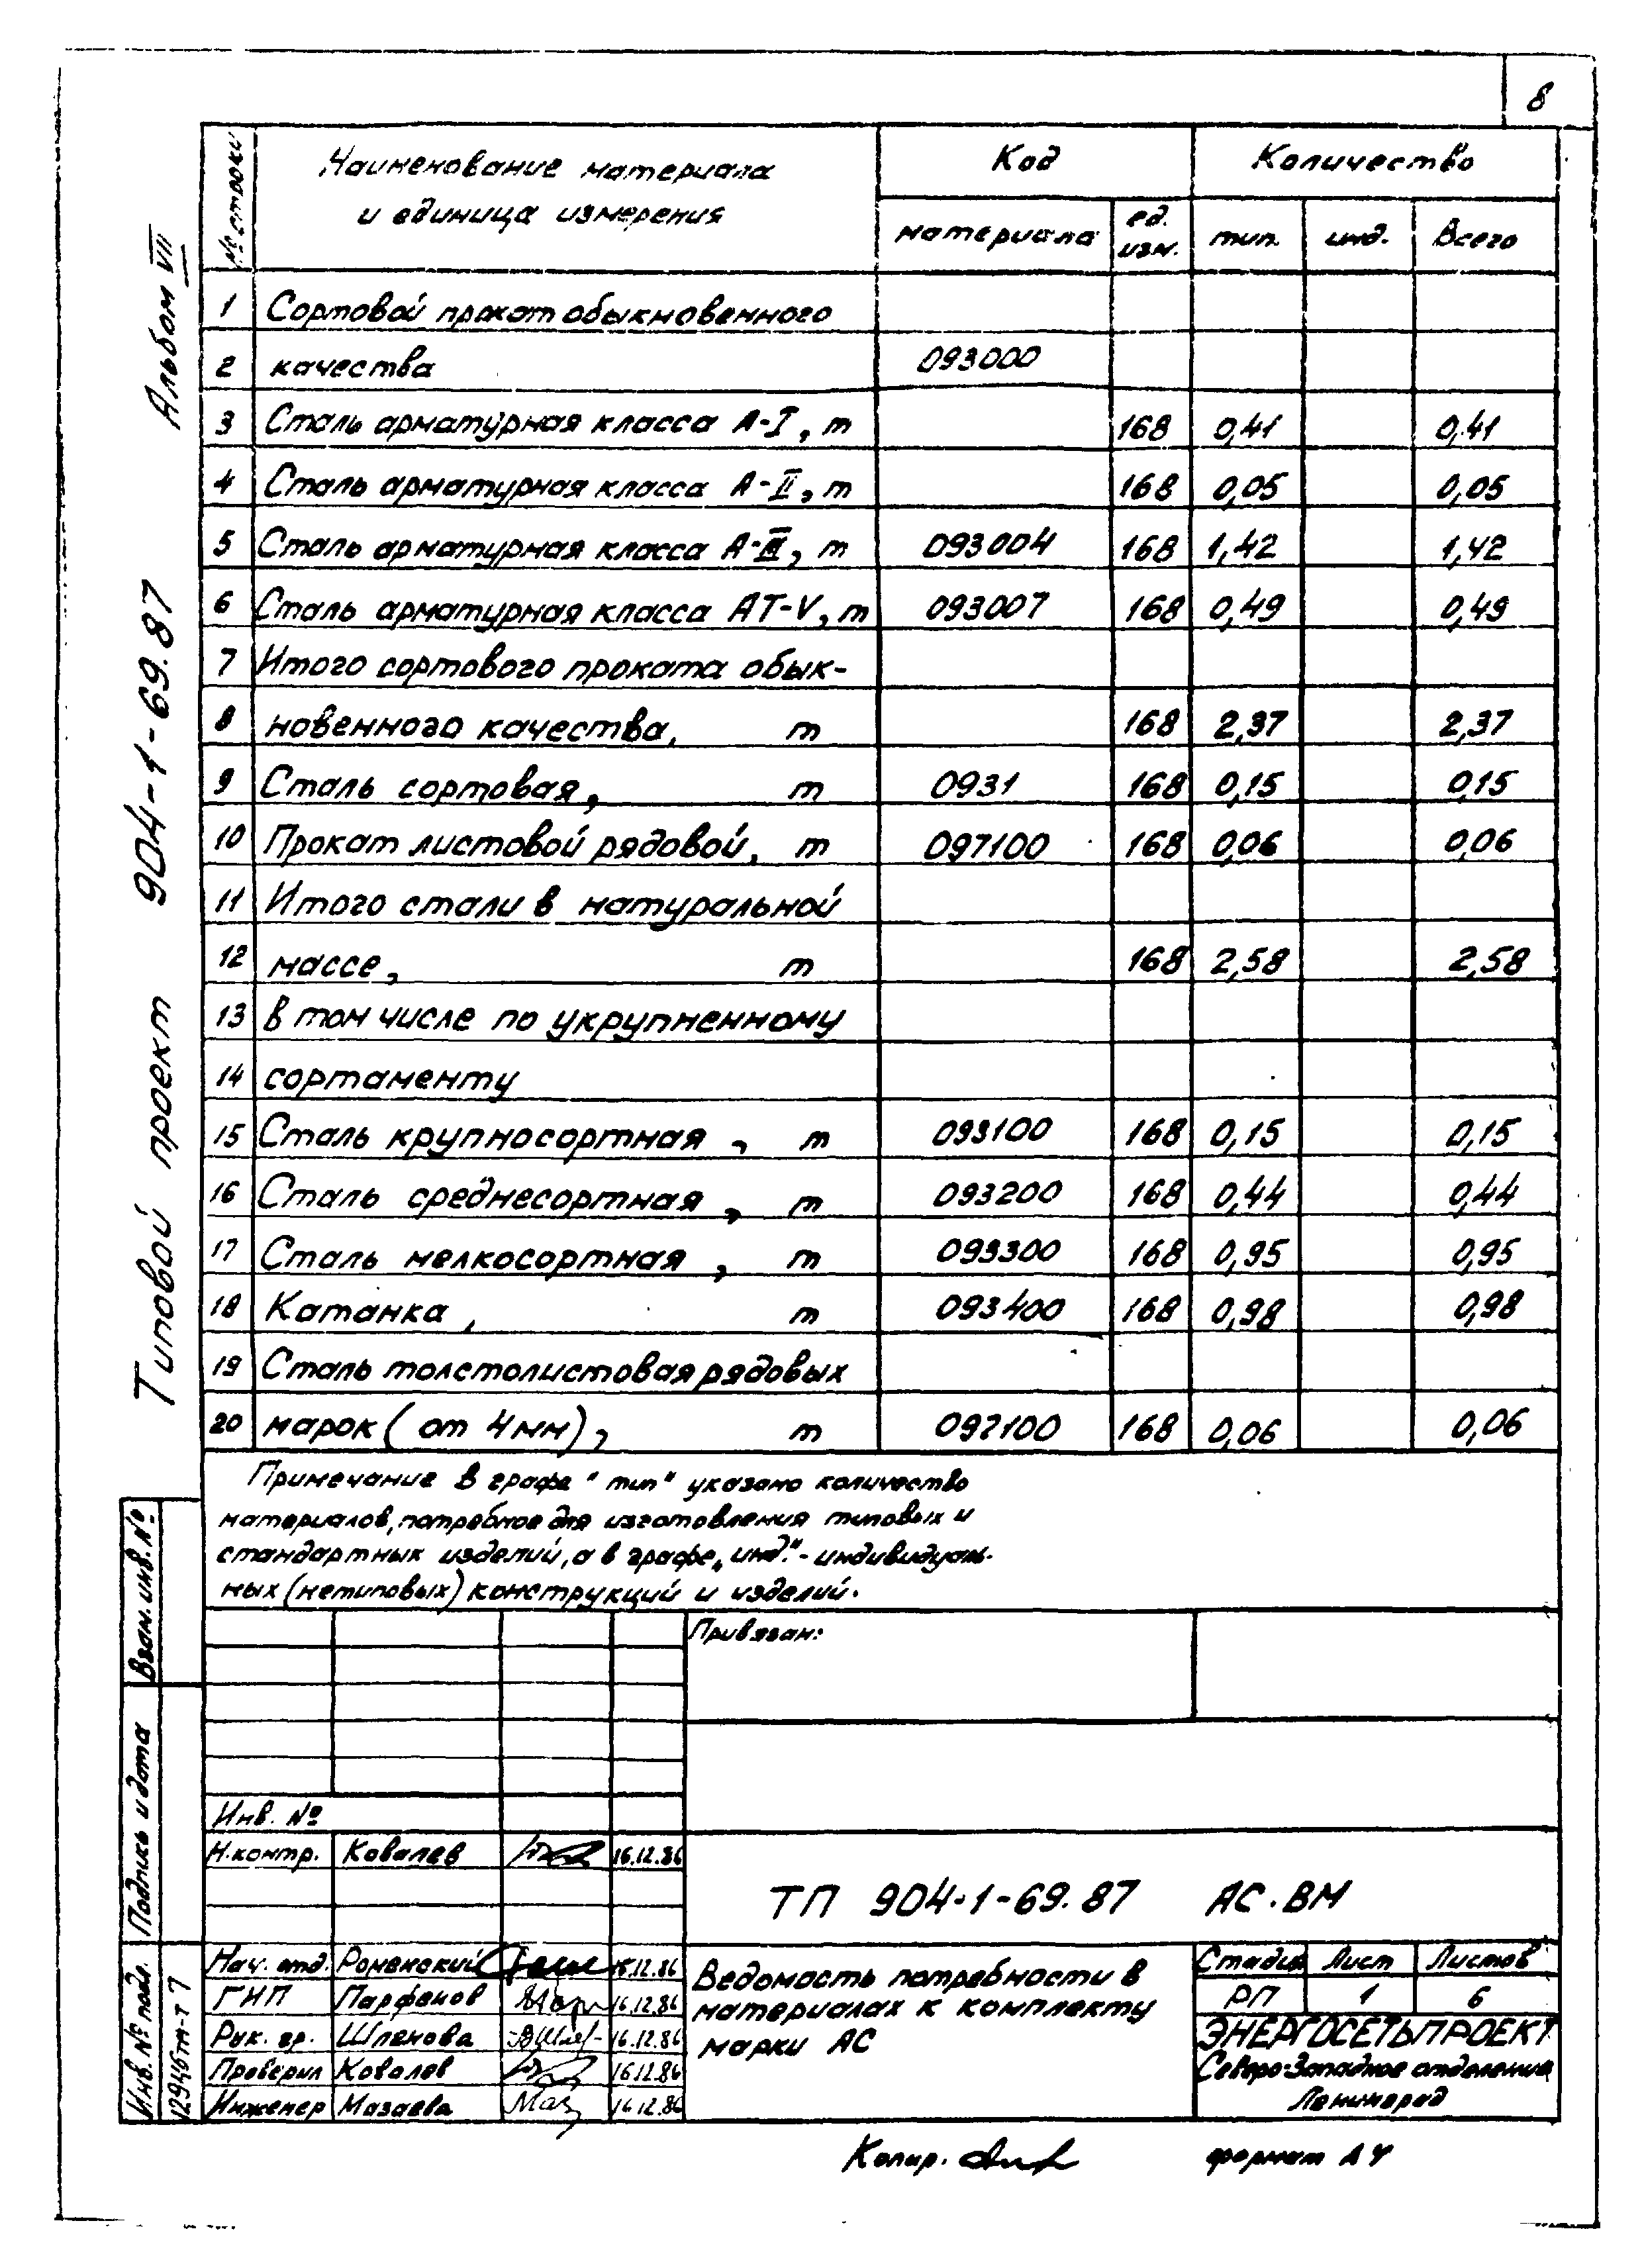 8
Альбом VII
Типовой проект 904-1-69.87
№ строки
Наименование материала
и единица измерения
Код
Количество
материала
ед.
изм.
тип.
инд.
Всего
1 Сортовой прокат обыкновенного
2 качества 093000
3 Сталь арматурная класса А-I, т 168 0,41 0,41
4 Сталь арматурная класса А-II, т 168 0,05 0,05
5 Сталь арматурная класса А-III, т 093004 168 1,42 1,42
6 Сталь арматурная класса АТ-V, т 093007 168 0,49 0,49
7 Итого сортового проката обык-
8 новенного качества, т 168 2,37 2,37
9 Сталь сортовая, т 0931 168 0,15 0,15
10 Прокат листовой рядовой, т 097100 168 0,06 0,06
11 Итого стали в натуральной
12 массе, т 168 2,58 2,58
13 в том числе по укрупненному
14 сортаменту
15 Сталь крупносортная, т 093100 168 0,15 0,15
16 Сталь среднесортная, т 093200 168 0,44 0,44
17 Сталь мелкосортная, т 093300 168 0,95 0,95
18 Катанка, т 093400 168 0,98 0,98
19 Сталь толстолистовая рядовых
20 марок (от 4мм), т 097100 168 0,06 0,06
Примечание В графе "тип" указано количество
материалов, потребное для изготовления типовых и
стандартных изделий, а в графе „инд."- индивидуаль-
ных (нетиповых) конструкций и изделий.
Привязан:
Инв. №
Н.контр. Ковалев 16.12.86
ТП 904-1-69.87 АС.ВМ
Нач. отд. Роменский 15.12.86
ГИП Парфенов 16.12.86
Рук. гр. Шленова 16.12.86
Проверил Ковалев 16.12.86
Инженер Мазаева 16.12.86
Ведомость потребности в
материалах к комплекту
марки АС
Стадия Лист Листов
РП 1 6
ЭНЕРГОСЕТЬПРОЕКТ
Северо-Западное отделение
Ленинград
Взам. инв. №
Подпись и дата
Инв. № подл.
12945тм-т7
Копир.
формат А4